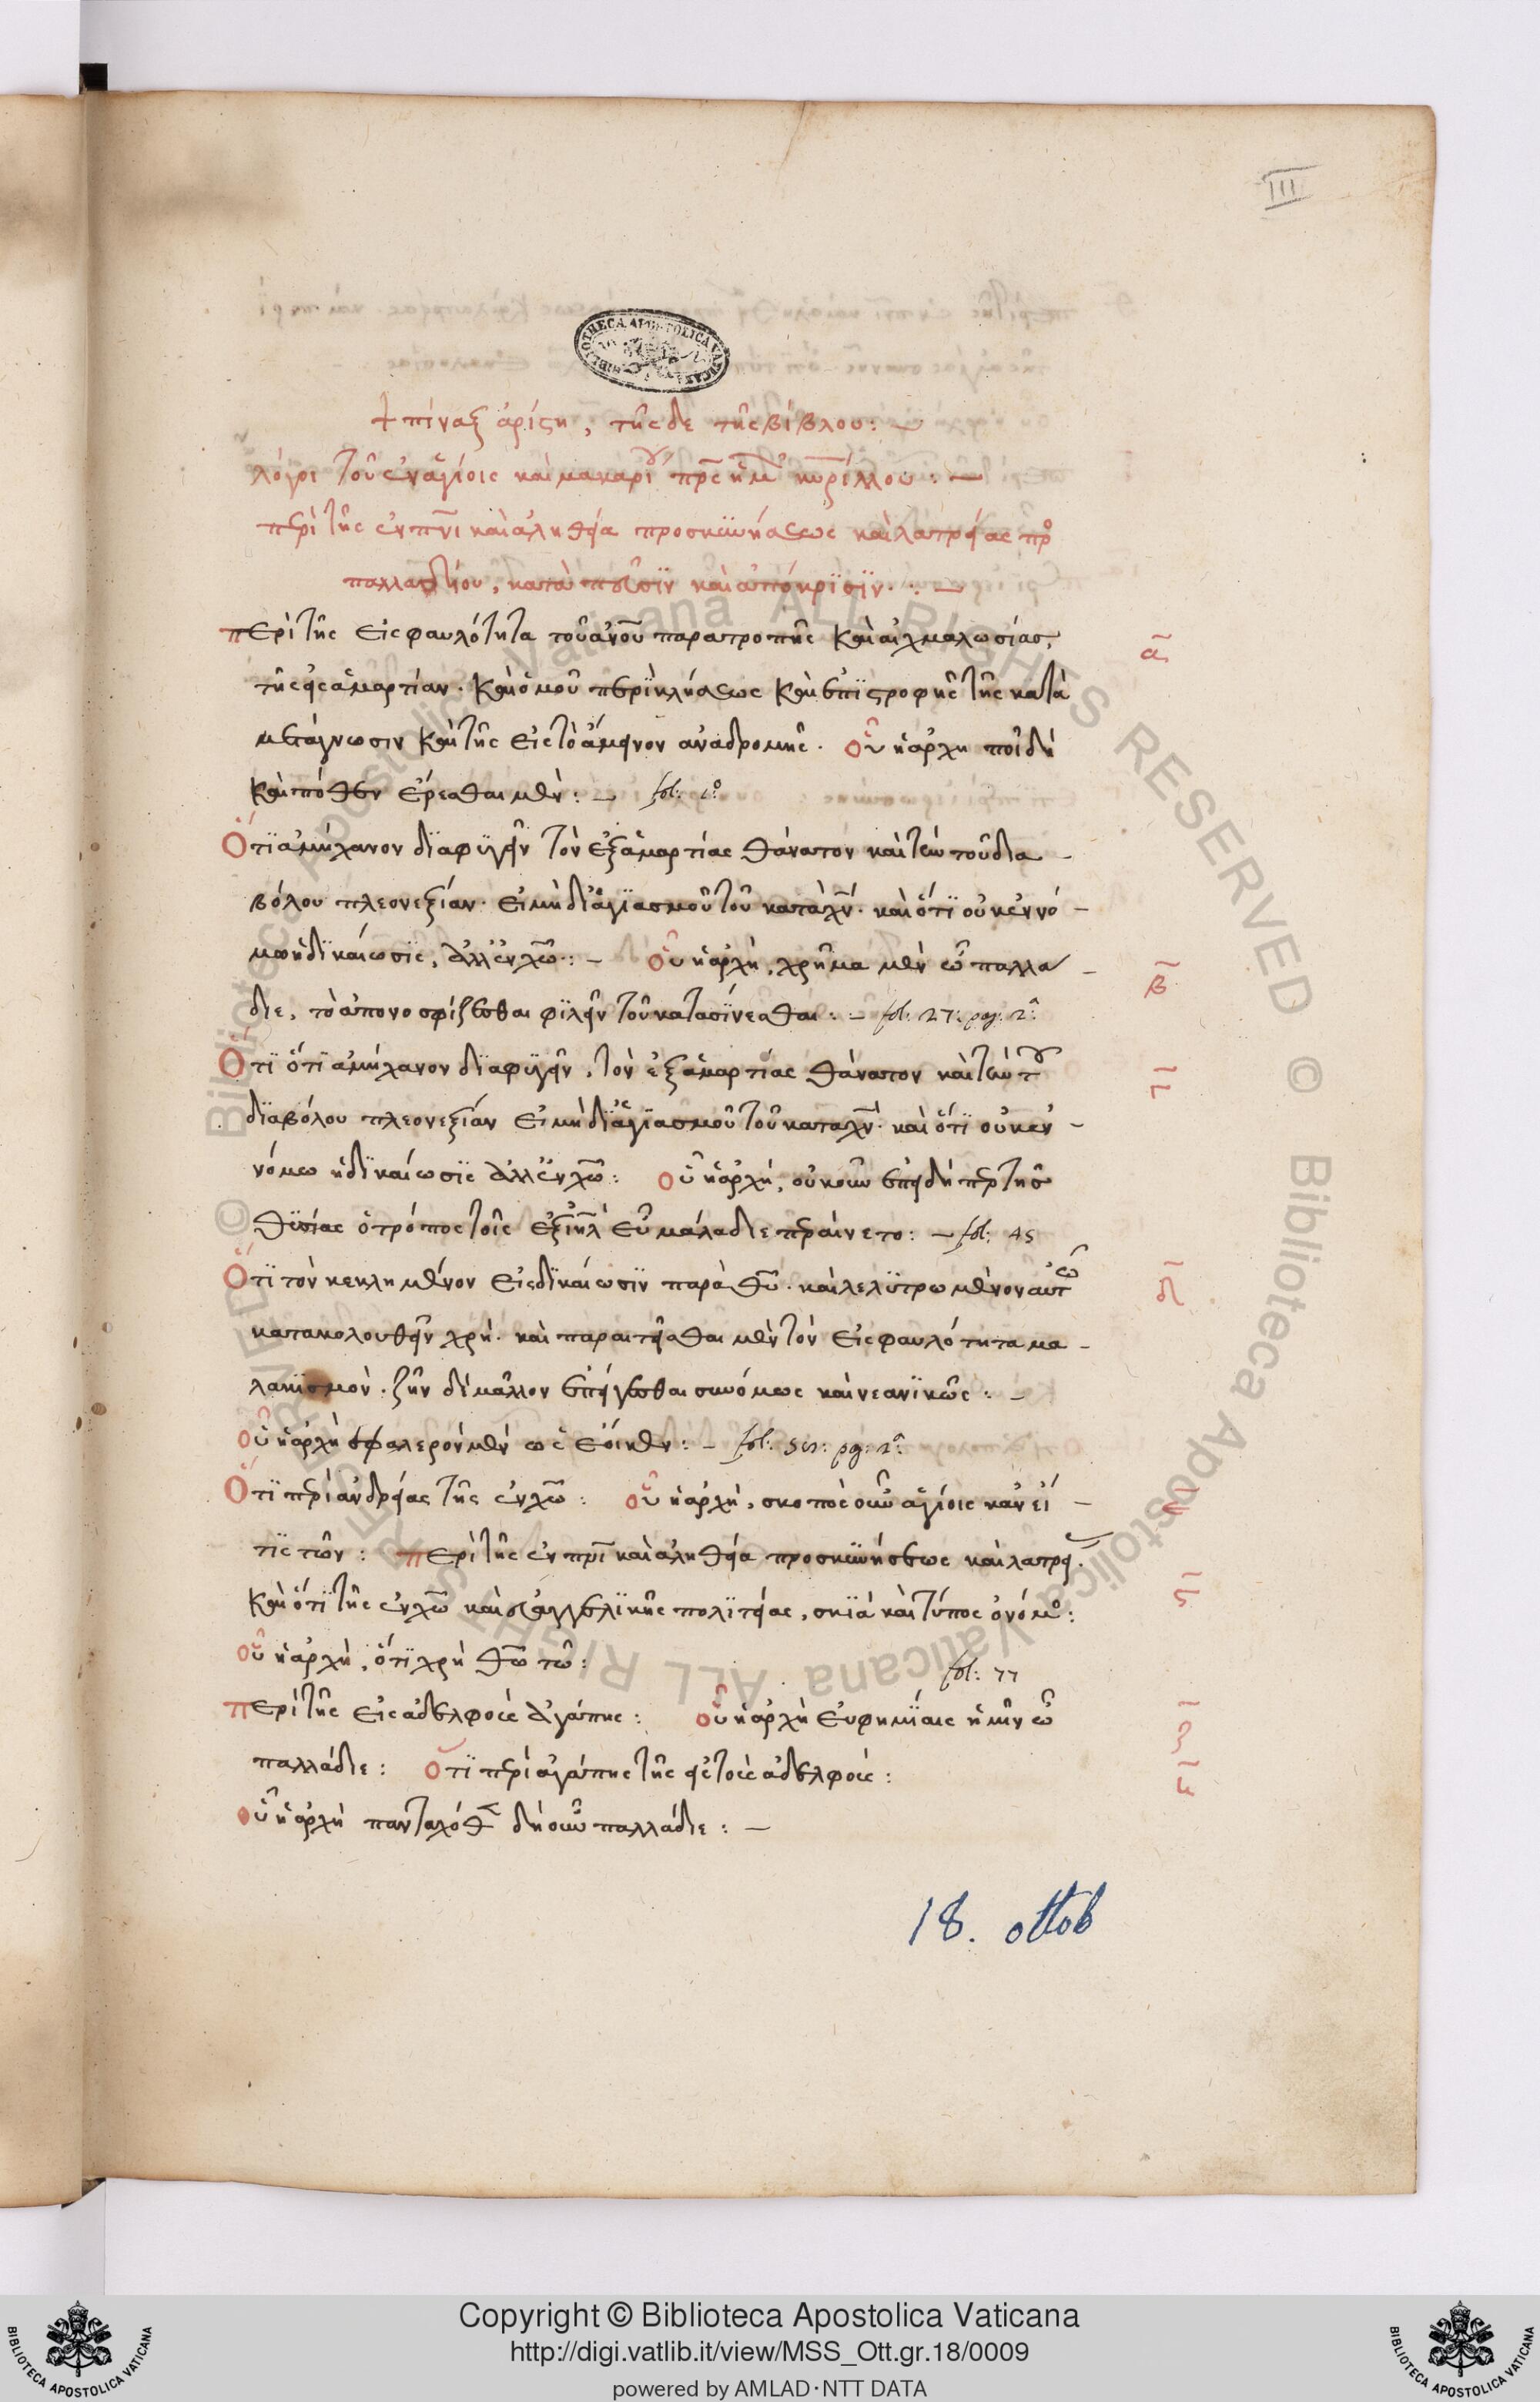 III
BIBLIOTHECA APOSTOLICA VATICANA
+ πίναξ ἀρίστη, τῆς δε τῆς βίβλου: ~
λόγοι τοῦ ἐν ἁγίοις καὶ μακαρί πρς ἡμ κυρίλλου: —
περὶ τῆς ἐν πνι καὶ ἀληθεία προσκυνήσεως καὶ λατρείας πρ
παλλάδιον, κατὰ πεῦσϊν καὶ ἀπόκρϊσϊν: —
περὶ τῆς εἰς φαυλότητα τοῦ ἀνου παρατροπῆς καὶ αἰχμαλωσίας, α
τῆς εἰς ἁμαρτίαν. καὶ ὁμοῦ περὶ κλήσεως καὶ ἐπϊστροφῆς τῆς κατὰ
μετάγνωσιν καὶ τῆς εἰς τὸ ἄμεινον ἀναδρομῆς. οὗ ἡ ἀρχη ποῖ δὴ
καὶ πόθεν : — fol: 1º
Ὅτι ἀμήχανον δϊαφυγεῖν τὸν ἐξ ἁμαρτίας θάνατον καὶ τὴν τοῦ δια -
βόλου πλεονεξίαν. εἰ μὴ δι ἁγϊασμοῦ τοῦ κατὰ χν. καὶ ὅτϊ οὐκ ἐν νό -
μω ἡ δϊκαίωσϊς, ἀλλ ἐν χω: — οὗ ἡ ἀρχὴ, χρῆμα μὲν ὦ παλλα - β
διε, τὸ ἀπονοσφίζεσθαι φϊλεῖν τοῦ κατασίνεσθαι: — fol: 27: pag: 2ª
Ὅτι ὅτϊ ἀμήχανον δϊαφυγεῖν, τὸν ἐξ ἁμαρτίας θάνατον καὶ τὴν τοῦ γ
δϊαβόλου πλεονεξίαν εἰ μὴ δϊ ἁγϊασμοῦ τοῦ κατα χν. καὶ ὅτϊ οὐκ ἐν -
νόμω ἡ δϊκαίωσϊς ἀλλ ἐν χω: οὗ ἡ ἀρχή, οὐκοῦν ἐπειδὴ περ τῆς
θυσίας ὁ τρόπος τοῖς ἐξ ιηλ εὖ μάλα διεπεραίνετο: — fol: 45
Ὅτϊ τὸν κεκλημένον εἰς δϊκαίωσϊν παρὰ θυ. καὶ λελυτρωμένον αὐτῶ δ
κατακολουθεῖν χρή. καὶ παραιτεῖσθαι μὲν τὸν εἰς φαυλότητα μα -
λακϊσμόν. ζῆν δὲ μᾶλλον ἐπείγεσθαι συνόμως καὶ νεανϊκῶς: —
οὗ ἡ ἀρχὴ σφαλερὸν μὲν ὡς ἔοικεν: — fol: pag: 2ª
Ὅτϊ περὶ ἀνδρείας τῆς ἐν χω: οὗ ἡ ἀρχὴ, σκοπὸς οὖν ἁγίοις καν εἴ - ε
τϊς τῶν: περὶ τῆς ἐν πνι καὶ ἀληθεία προσκυνήσεως καὶ λατρεί.
καὶ ὅτϊ τῆς ἐν χω καὶ εὐαγγελϊκῆς πολϊτείας, σκϊὰ καὶ τύπος ὁ νόμος: ς
οὗ ἡ ἀρχὴ, ὅτϊ χρὴ θω τῶ: fol: 77
περὶ τῆς εἰς ἀδελφοὺς ἀγάπης: οὗ ἡ ἀρχὴ εὐφημίαις ἡμῖν ὦ ζ
παλλάδιε: Ὅτϊ περὶ ἀγάπης τῆς εἰς τοὺς ἀδελφούς:
οὗ ἡ ἀρχὴ πανταχόθεν δὴ οὖν παλλάδιε: —
18. ottob
© Biblioteca Apostolica Vaticana ALL RIGHTS RESERVED © Biblioteca Apostolica Vaticana ALL RIGHTS RESERVED
Copyright © Biblioteca Apostolica Vaticana
http://digi.vatlib.it/view/MSS_Ott.gr.18/0009
powered by AMLAD·NTT DATA
BIBLIOTECA APOSTOLICA VATICANA
BIBLIOTECA APOSTOLICA VATICANA